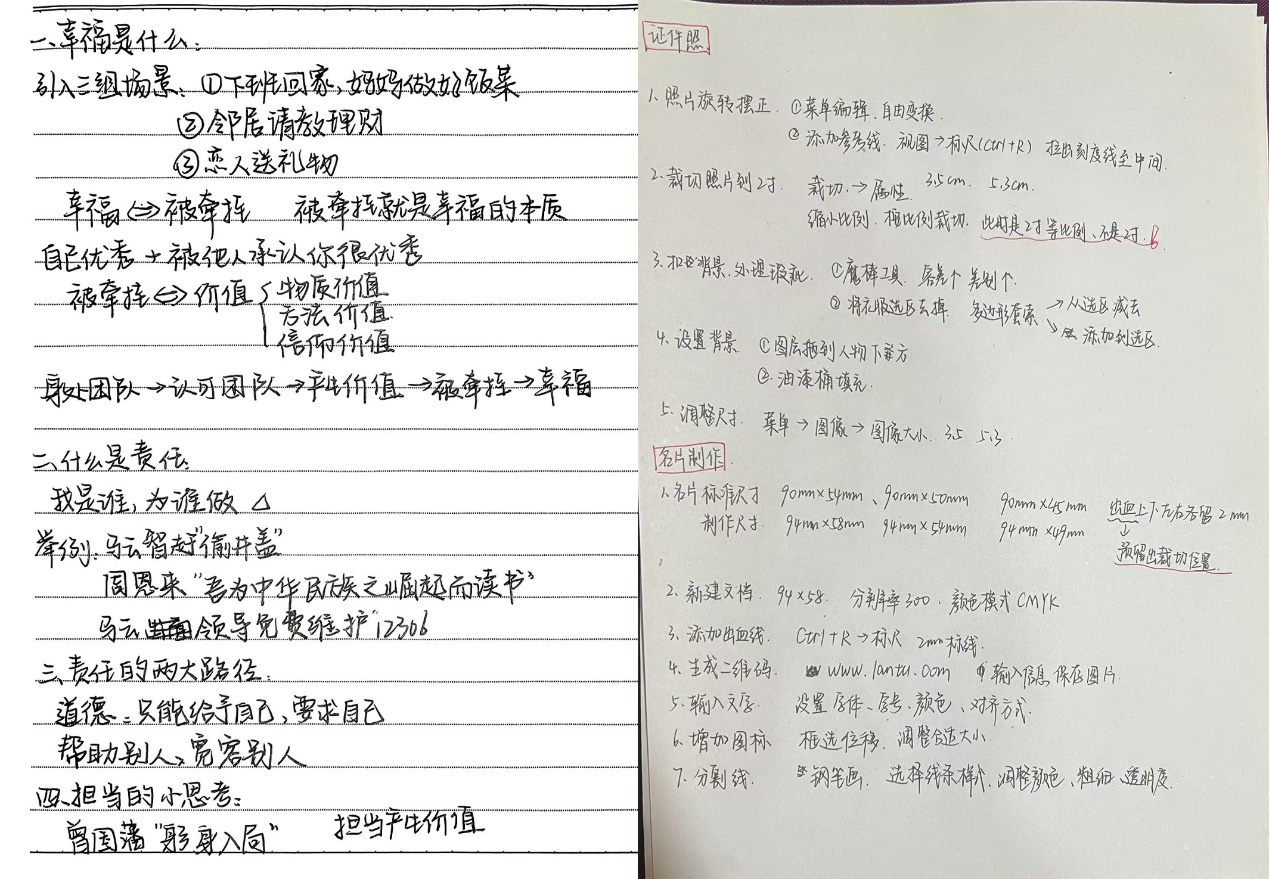 一、幸福是什么:
引入三组场景: ①下班回家,妈妈做好饭菜
②邻居请教理财
③恋人送礼物
幸福⇔被牵挂 被牵挂就是幸福的本质
自己优秀+被他人承认你很优秀
被牵挂⇔价值 { 物质价值
方法价值
信仰价值
身处团队→认可团队→产生价值→被牵挂→幸福
二、什么是责任:
我是谁,为谁做 △
举例: 马云智赶“偷井盖”
周恩来“吾为中华民族之崛起而读书”
马云 领导免费维护12306
三、责任的两大路径:
道德: 只能给予自己、要求自己
帮助别人、宽容别人
四、担当的小思考:
曾国藩“躬身入局” 担当产生价值
证件照
1、照片旋转摆正. ①菜单编辑、自由变换.
② 添加参考线. 视图→标尺(Ctrl+R) 拉出刻度线至中间.
2、裁切照片到2寸. 裁切.→属性 3.5cm. 5.3cm.
缩小比例. 按比例裁切. 此时是2寸等比例、不是2寸.
3、抠出背景、处理瑕疵. ①魔棒工具. 容差个 差别个.
② 将衣服选区去掉 多边形套索 →从选区减去
↘ 添加到选区.
4、设置背景 ①图层拖到人物下方
②. 油漆桶填充.
5、调整尺寸. 菜单→图像→图像大小. 3.5 5.3.
名片制作.
1、名片标准尺寸 90mm×54mm、90mm×50mm 90mm×45mm 出血上下左右各留2mm
制作尺寸. 94mm×58mm 94mm×54mm 94mm×49mm ↓
预留出裁切位置.
2、新建文档. 94×58. 分辨率300. 颜色模式CMYK
3、添加出血线. Ctrl+R→标尺 2mm标线.
4、生成二维码. www.lantu.com 输入信息保存图片.
5、输入文字. 设置字体、字号、颜色、对齐方式.
6、增加图标 框选位移. 调整合适大小.
7、分割线. 钢笔画. 选择线条样式、调整颜色、粗细、透明度.